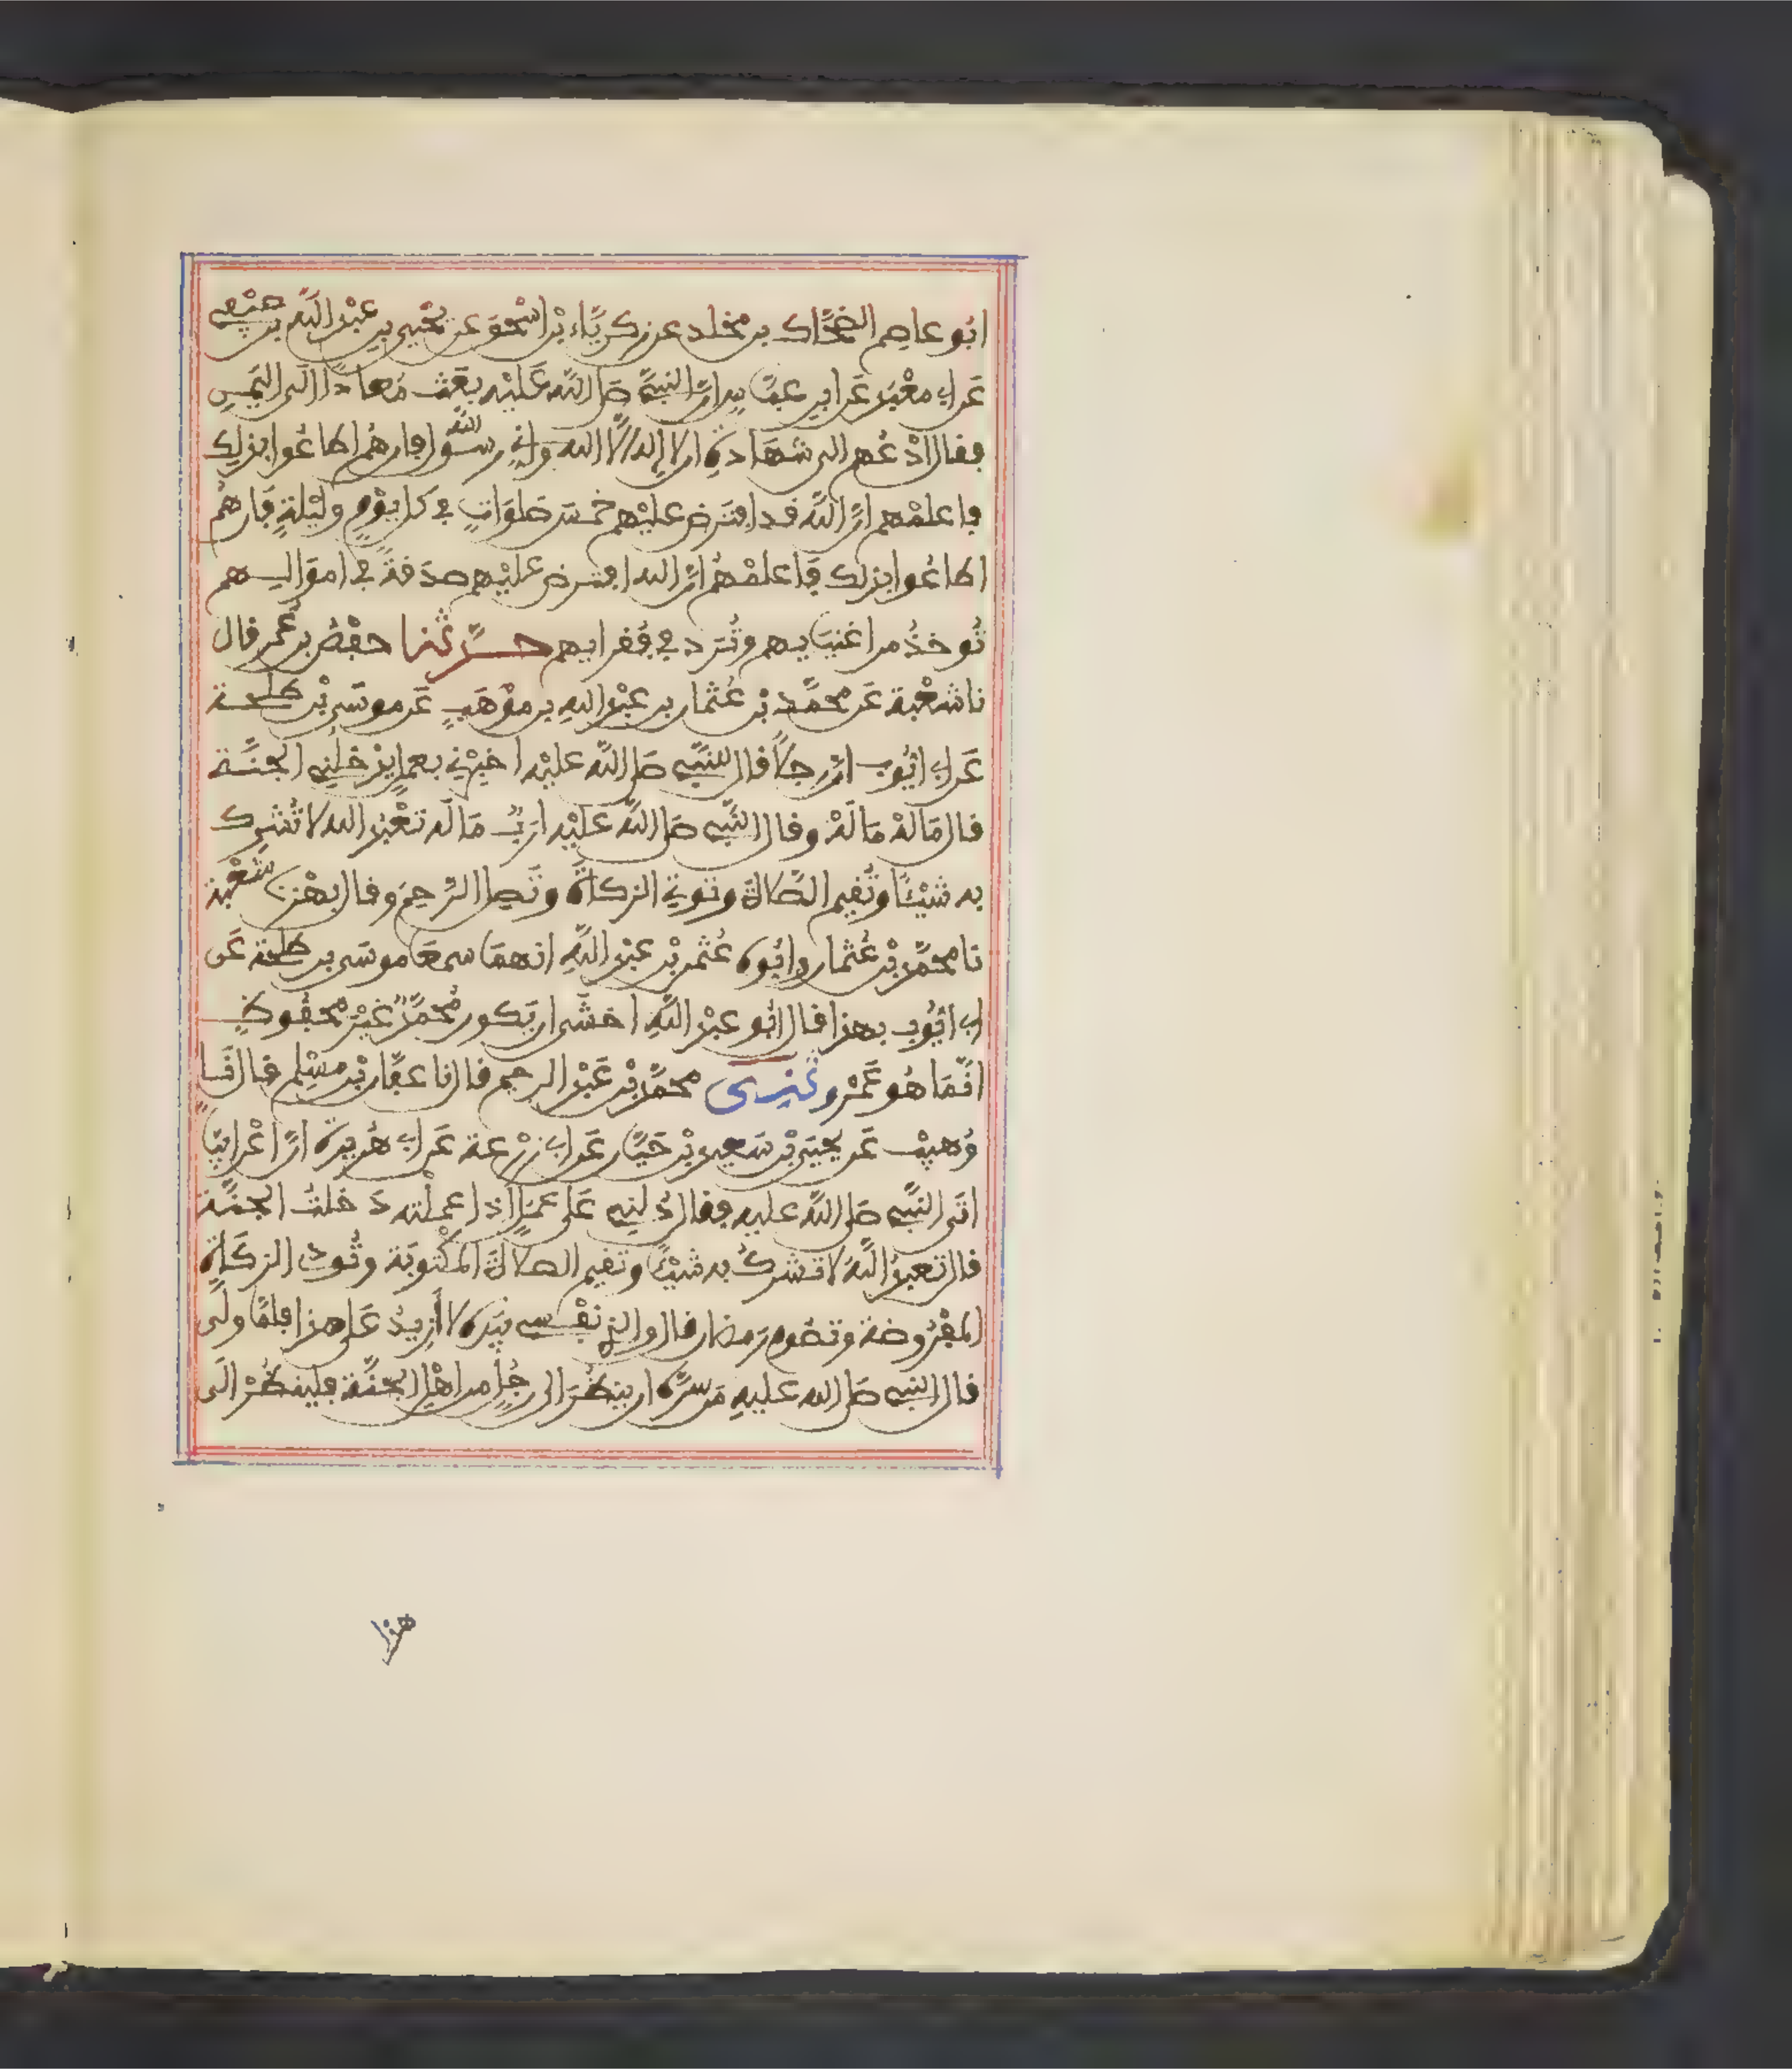 ابُو عاصِم الضَّحَّاك بن مخلد عن زكريَّاء بْن اسْحٰق عن يحْيى بنِ عبْد اللَّه بن صيْفى
عَن ابى معْبَد عَن ابن عبَّاس ان النبيَّ صلى اللَّه عَلَيْه بعَث مُعاذًا الَى اليَمَن
فقال ادْعُهم الى شهَادةِ ان لا إله الَّا الله وانى رسُول اللَّه فان هُم اطاعُوا بذلك
فاعلمْهم انَّ اللَّه قد افتَرض عليْهم خمسَ صَلوَاتٍ فى كل يوْمٍ ولَيْلةٍ فَان هُمْ
اطاعُوا بذلك فَاعلمْهُم انَّ الله افترض عليْهم صدَقةً فى اموَالهم
تُوخذُ من اغنيَايهم وتُرَد فى فُقرايهم حدَّثنا حفْصُ بن عُمر قال
نا شعْبة عَن محمَّد بْن عُثمان بن عبْد اللهِ بن موْهَبٍ عَن موسَى بْن طلحة
عَن ابى ايُّوب انَّ رجلاً قال للنَّبيِّ صلى اللَّه عليْه اخبِرْنى بعملٍ يدْخلُنِى الجنَّة
قال مَا لَهْ مَا لَهْ وقال النَّبي صلى اللَّه عليْه ارَبٌ مَا لَه تعْبُد الله لا تُشرك
به شيْئاً وتُقيم الصَّلاة وتوتى الزكاةَ وتَصِل الرَّحِمَ وقال بهْز نا شعْبة
نا محمَّد بْن عُثمان وابُوه عُثمن بْن عبْد اللَّهِ انهمَا سمعَا موسَى بن طلحة عَن
ابى ايُّوب بهذا قال ابُو عبْد اللَّهِ اخشَى ان يَكون مُحمَّدٌ غيْرَ محْفُوظٍ
انَّمَا هُو عَمْرو ثنى محمَّد بْن عَبْد الرحيم قال نا عفَّان بْن مسْلِم قال نَا
وُهيْب عَن يحيَى بْن سَعيد بْن حَيَّان عَن ابى زرْعة عَن ابى هُريرة انَّ اعْرابيًّا
اتَى النَّبيَّ صلى اللَّه عليه فقال دُلنِى عَلى عمَلٍ اذا عملْته دَخلتُ الجنَّة
قال تعبدُ اللَّهَ لا تشركُ به شيْئاً وتقيم الصلاةَ المكْتوبَة وتُودى الزكَاةَ
المفْرُوضة وتصُوم رَمضان قال والذى نفْسى بيَده لا أزيدُ عَلى هذا فلمَّا ولَّى
قال النبى صلى الله عليهِ مَن سرَّه ان ينظُرَ الى رجُلٍ من اهْلِ الجنَّة فلينظُرْ الَى
هذا